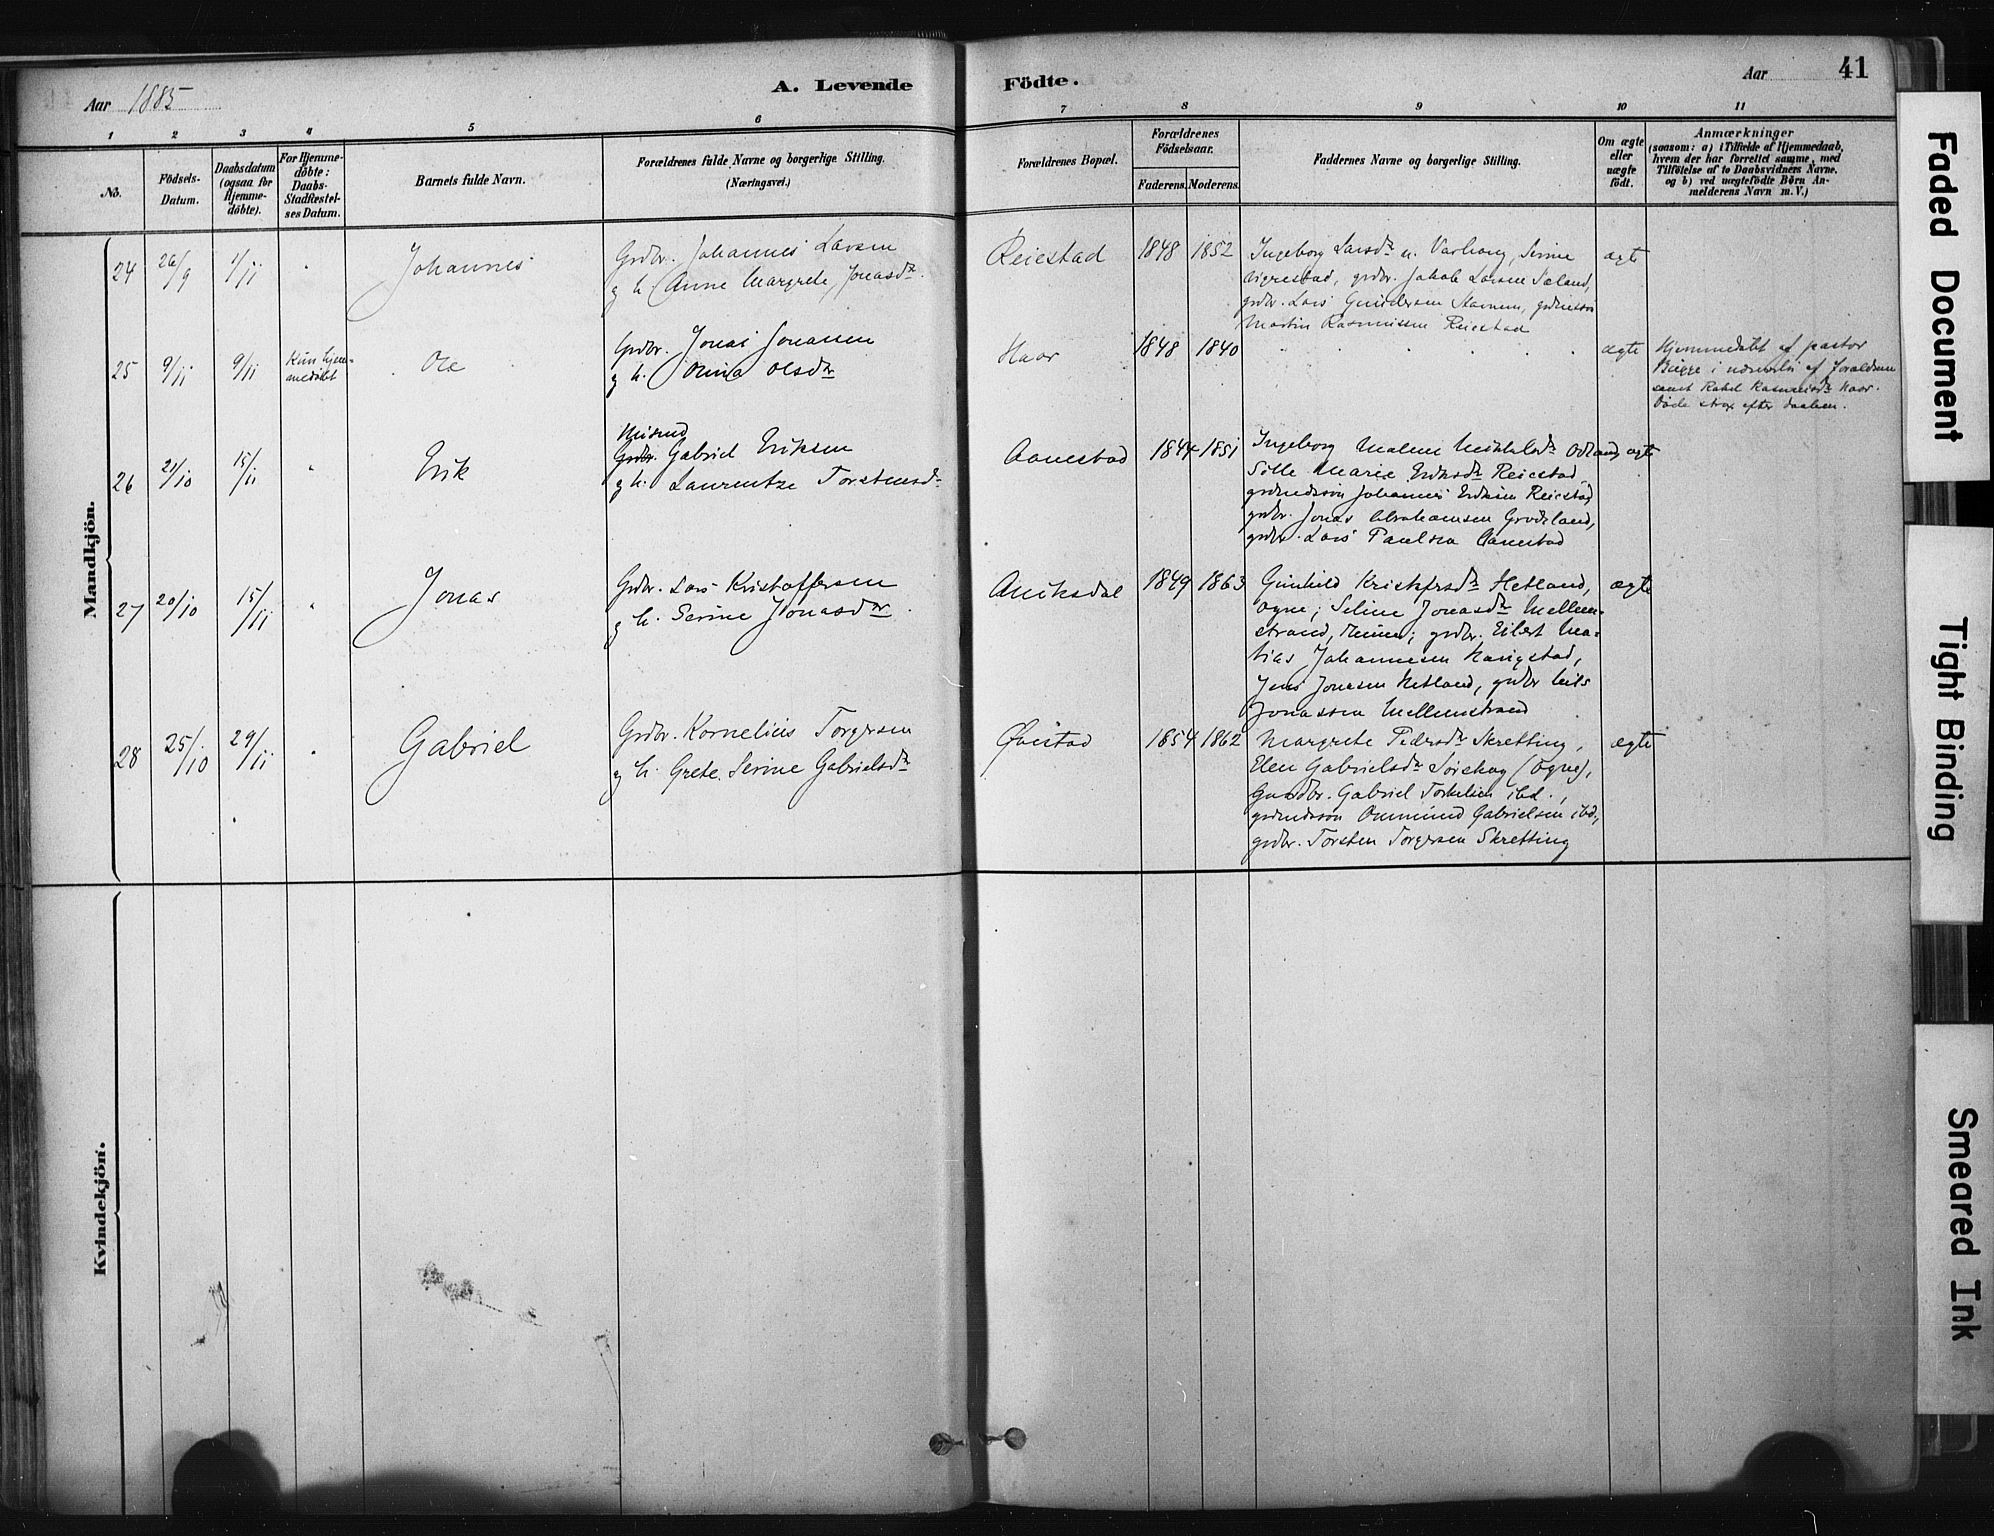 Aar 1885
A. Levende Födte.
Aar
41
1 2 3 4 5 6 7 8 9 10 11
No.
Födsels-
Datum.
Daabsdatum
(ogsaa for
Hjemme-
döbte).
For Hjemme-
döbte:
Daabs-
Stadfæstel-
ses Datum.
Barnets fulde Navn.
Forældrenes fulde Navne og borgerlige Stilling.
(Næringsvei.)
Forældrenes Bopæl.
Forældrenes
Födselsaar.
Faderens. Moderens.
Faddernes Navne og borgerlige Stilling.
Om ægte
eller
uægte
födt.
Anmærkninger
(saasom: a) i Tilfælde af Hjemmedaab,
hvem der har forrettet samme, med
Tilföielse af to Daabsvidners Navne,
og b) ved uægtefödte Börn An-
melderens Navn m. V.)
Mandkjön.
24 26/9 1/11 Johannes
Grdbr. Johannes Larsen
g h. Anne Margrete Jonasdr.
Reiestad 1848 1852
Ingeborg Larsdr n. Varhoug, Serine
Vigrestad, grdbr. Jakob Larsen Sæland,
grdbr. Lars Gundersen
Martin Rasmussen Reiestad
ægte
25 9/11 9/11
Kun hjem-
medöbt
Ole
Grdbr. Jonas Jonassen
g h. Olsdr
Haar 1848 1840
ægte
Hjemmedöbt af pastor
Bugge i nærværelse af Forældrene
samt Rakel Rasmusdr Haar.
Döde strax efter daaben.
26 21/10 15/11 Erik
Grdbr. Gabriel Eriksen
g h. Laurentze Torstensdr
Aanestad 1844 1851
Ingeborg Malene Mikkelsdr Odland,
Marie Eriksdr Reiestad,
Johannes Eriksen Reiestad
grdbr. Jonas Abrahamsen Grödeland,
grdbr. Lars Paulsen Aanestad
ægte
27 20/10 15/11 Jonas
Grdbr. Lars Kristoffersen
g h. Serine Jonasdr.
Auiksdal 1849 1863
Gunhild Kristofrsdr Hetland,
Ogne; Seline Jonasdr Mellem-
strand, grdbr. Eilert Ma-
tias Johannesen
Jens Jonasen Hetland, grdbr Nils
Jonassen Mellemstrand
ægte
28 25/10 29/11 Gabriel
Grdbr. Kornelius Torgersen
g h. Grete Serine Gabrielsdr
1854 1862
Margrete Pedersdr Skretting,
Elen Gabrielsdr Sörskog (Ogne),
Gaardbr. Gabriel Torkelsen ibd.,
Ommund Gabrielsen ibd,
grdbr. Torsten Torgersen Skretting
ægte
Kvindekjön.
Faded Document
Tight Binding
Smeared Ink